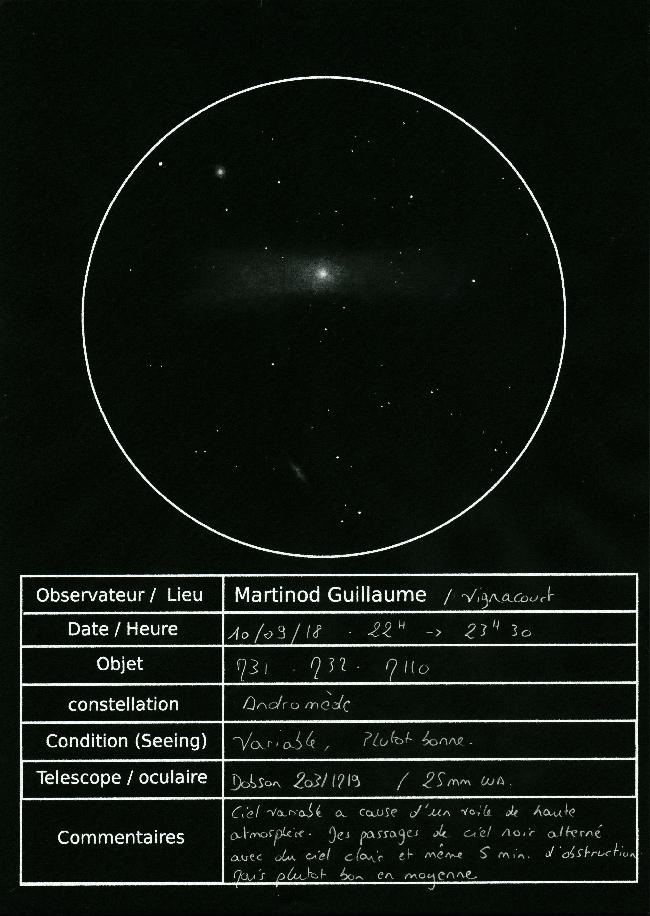 Observateur / Lieu Martinod Guillaume / Vignacourt
Date / Heure 10/09/18 . 22H -> 23H 30
Objet M31 . M32 . M110
constellation Andromède
Condition (Seeing) Variable, Plutot bonne.
Telescope / oculaire Dobson 203/1219 / 25mm WA.
Commentaires
Ciel variable a cause d'un voile de haute
atmosphère. Des passages de ciel noir alterné
avec du ciel clair et même 5 min. d'obstruction
Mais plutot bon en moyenne